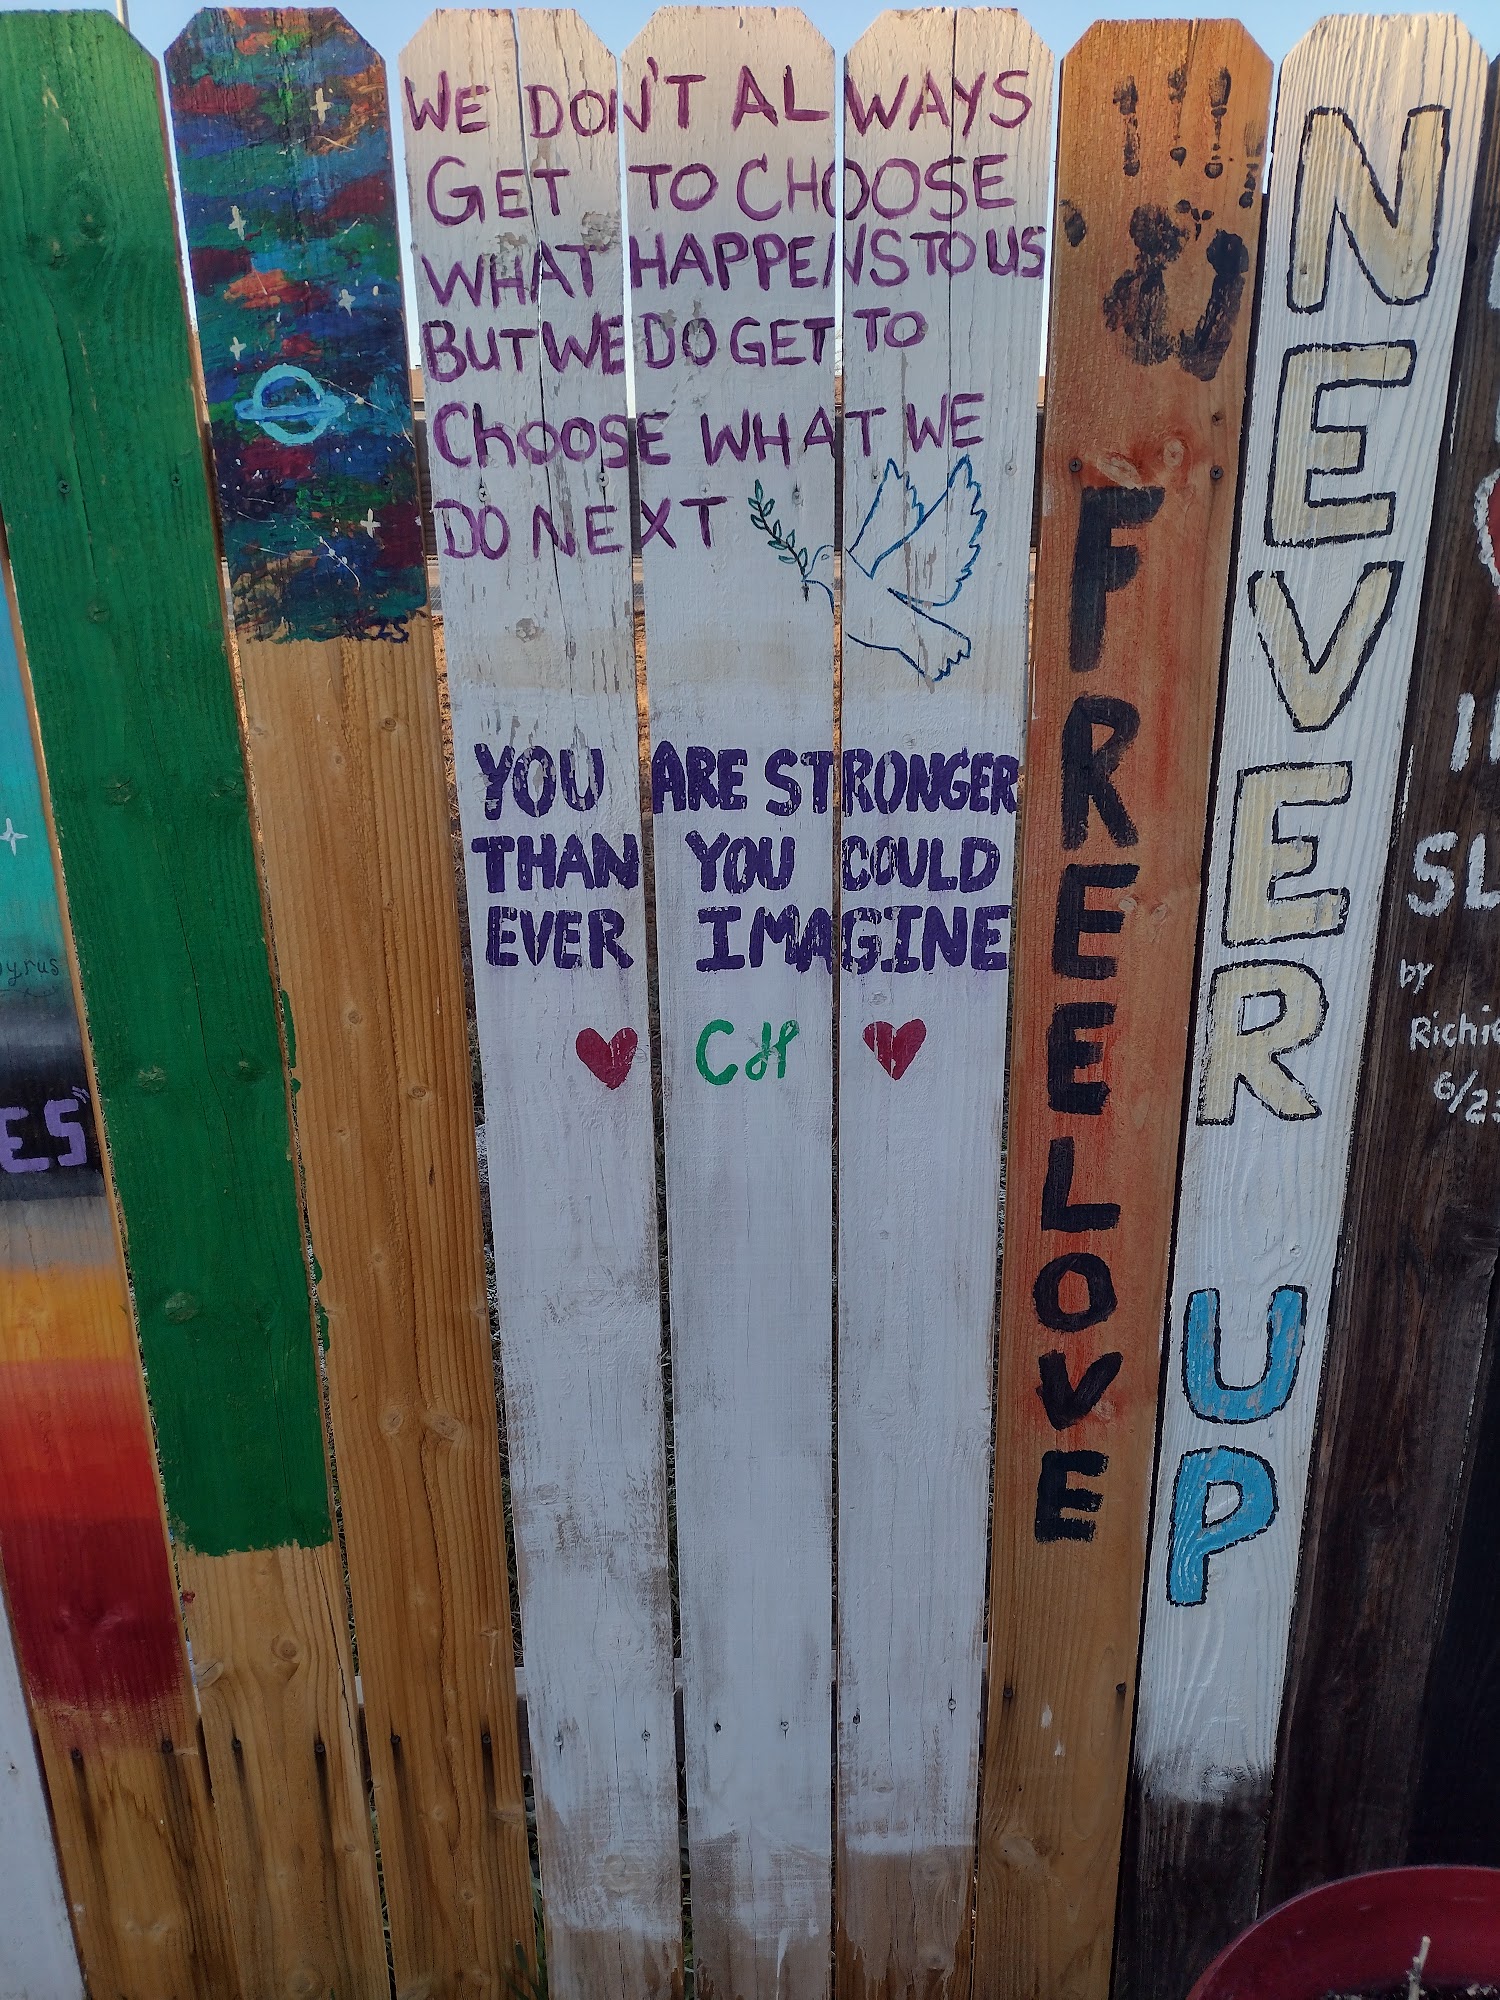 WE DON'T ALWAYS
GET TO CHOOSE
WHAT HAPPENS TO US
BUT WE DO GET TO
CHOOSE WHAT WE
DO NEXT
YOU ARE STRONGER
THAN YOU COULD
EVER IMAGINE
CH
FREELOVE
NEVER
UP
by
Richie
6/23